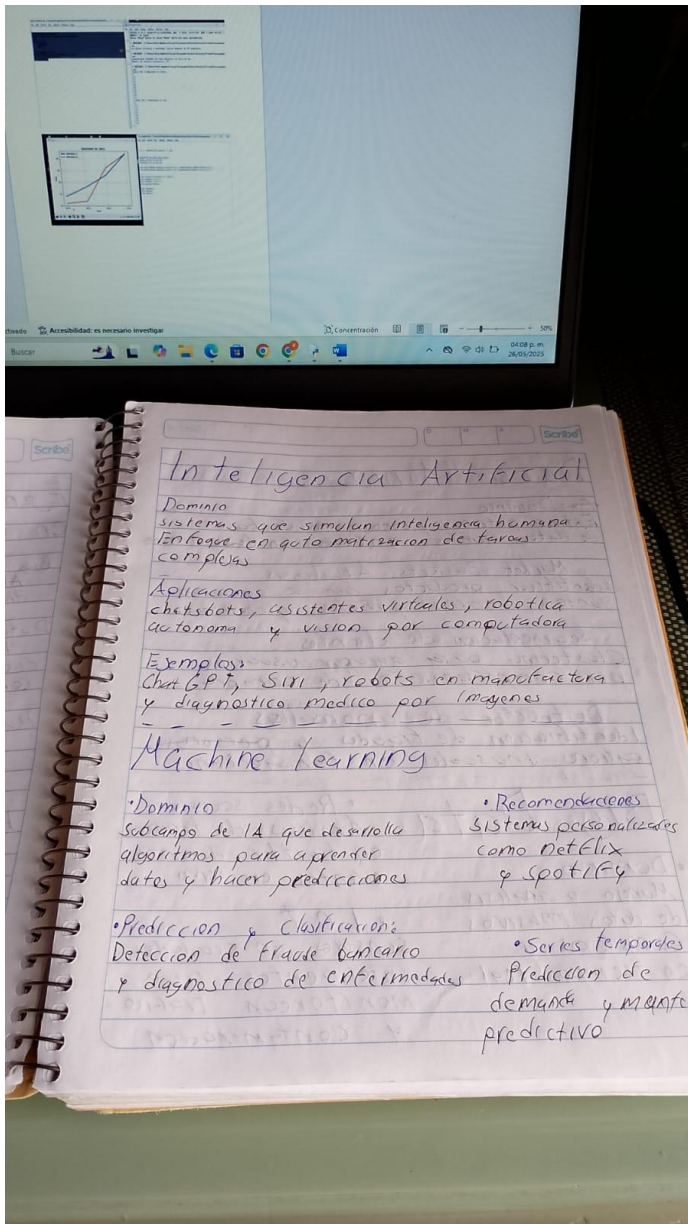 Accesibilidad: es necesario investigar
Concentración
50%
Buscar
04:08 p. m.
26/05/2025
Scribe
Scribe
Inteligencia Artificial
Dominio
sistemas que simulan inteligencia humana
Enfoque en automatizacion de tareas
complejas
Aplicaciones
chatsbots, asistentes virtuales, robotica
autonoma y vision por computadora
Ejemplos:
Chat GPT, Siri, robots en manufactura
y diagnostico medico por Imagenes
Machine Learning
•Dominio
subcampo de IA que desarrolla
algoritmos para aprender
datos y hacer predicciones
•Recomendaciones
sistemas personalizados
como netflix
y spotify
•Prediccion y Clasificacion:
Deteccion de fraude bancario
y diagnostico de enfermedades
•Series temporales
Prediccion de
demanda y mante
predictivo